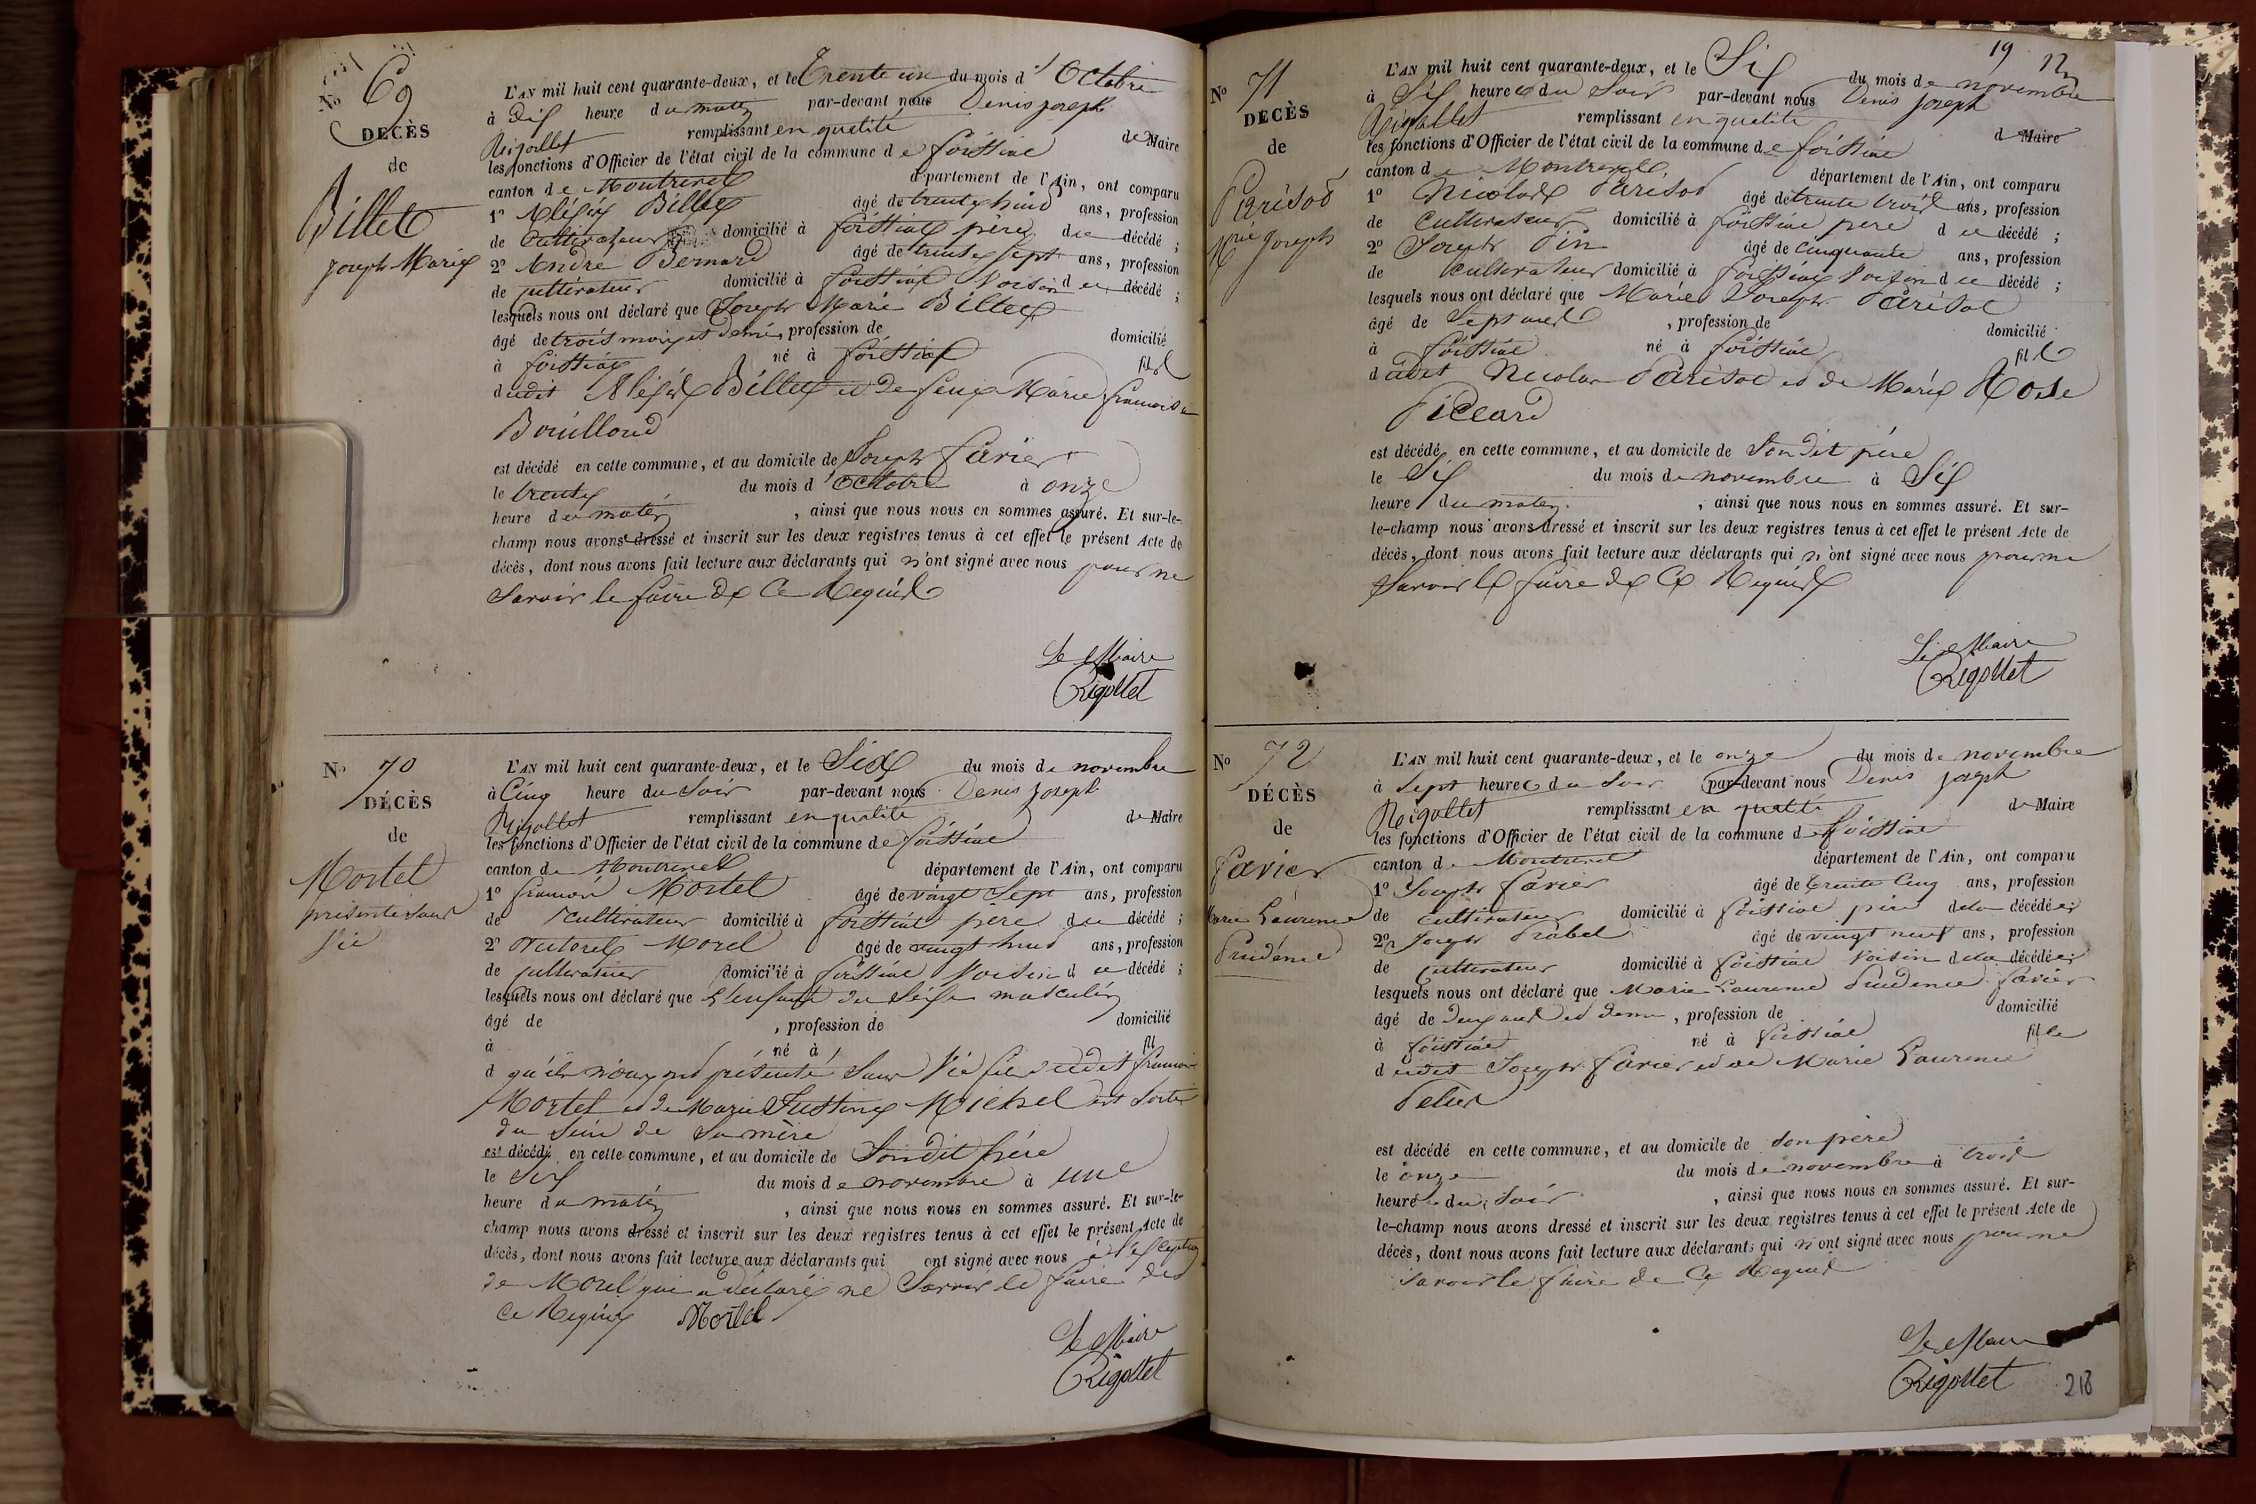 No 69
DECÈS
de
Billet
Joseph Marie
L'AN mil huit cent quarante-deux, et le Trente un du mois d'Octobre
à dix heure du matin par-devant nous Denis joseph
Rigollet remplissant en qualité de Maire
les fonctions d'Officier de l'état civil de la commune de foissiat
canton de Montrevel département de l'Ain, ont comparu
1o Billet âgé de trente huit ans, profession
de Cultivateur domicilié à foissiat père du décédé ;
2o André Bernard âgé de trente sept ans, profession
de cultivateur domicilié à foissiat Voisin du décédé ;
lesquels nous ont déclaré que Joseph Marie Billet
âgé de trois mois et demi, profession de domicilié
à foissiat né à foissiat fils
dudit Billet et de feue Marie françoise
Bouilloud
est décédé en cette commune, et au domicile de Joseph favier
le trente du mois d'octobre à onze
heure du matin, ainsi que nous nous en sommes assuré. Et sur-le-
champ nous avons dressé et inscrit sur les deux registres tenus à cet effet le présent Acte de
décès, dont nous avons fait lecture aux déclarants qui n'ont signé avec nous pour ne
Savoir le faire de Ce Requis
Le Maire
Rigollet
No 70
DÉCÈS
de
Mortel
présenté sans
vie
L'AN mil huit cent quarante-deux, et le Six du mois de novembre
à Cinq heure du Soir par-devant nous Denis joseph
Rigollet remplissant en qualité de Maire
les fonctions d'Officier de l'état civil de la commune de foissiat
canton de Montrevel département de l'Ain, ont comparu
1o françois Mortel âgé de vingt Sept ans, profession
de cultivateur domicilié à foissiat père du décédé ;
2o Morel âgé de vingt huit ans, profession
de cultivateur domicilié à foissiat Voisin du décédé ;
lesquels nous ont déclaré que L'enfant du Séxe masculin
âgé de , profession de domicilié
à né à fil
d qu'ils nous ont présenté Sans Vie fils dudit françois
Mortel et de Marie Justine Michel est Sorti
du Sein de Sa mère
est décédé en cette commune, et au domicile de Son dit père
le Six du mois de novembre à une
heure du matin, ainsi que nous nous en sommes assuré. Et sur-le-
champ nous avons dressé et inscrit sur les deux registres tenus à cet effet le présent Acte de
décès, dont nous avons fait lecture aux déclarants qui ont signé avec nous à l'exception
de Morel qui a déclaré ne Savoir le faire de
Ce Requis Mortel
Le Maire
Rigollet
19
No 71
DECÈS
de
Parisod
Mrie Joseph
L'AN mil huit cent quarante-deux, et le Six du mois de novembre
à Six heures du Soir par-devant nous Denis joseph
Rigollet remplissant en qualité de Maire
les fonctions d'Officier de l'état civil de la commune de foissiat
canton de Montrevel département de l'Ain, ont comparu
1o Nicolas Parisod âgé de trente trois ans, profession
de Cultivateur domicilié à foissiat père du décédé ;
2o Joseph Pin âgé de cinquante ans, profession
de Cultivateur domicilié à foissiat Voisin du décédé ;
lesquels nous ont déclaré que Marie Joseph Parisod
âgé de Sept ans, profession de domicilié
à foissiat né à foissiat fils
dudit Nicolas Parisod et de Marie Rose
Piccard
est décédé en cette commune, et au domicile de Son dit père
le Six du mois de novembre à Six
heure du matin, ainsi que nous nous en sommes assuré. Et sur-
le-champ nous avons dressé et inscrit sur les deux registres tenus à cet effet le présent Acte de
décès, dont nous avons fait lecture aux déclarants qui n'ont signé avec nous pour ne
Savoir le faire de Ce Requis
Le Maire
Rigollet
No 72
DÉCÈS
de
favier
Marie Laurence
Prudence
L'AN mil huit cent quarante-deux, et le onze du mois de novembre
à Sept heures du Soir par-devant nous Denis joseph
Rigollet remplissant en qualité de Maire
les fonctions d'Officier de l'état civil de la commune de foissiat
canton de Montrevel département de l'Ain, ont comparu
1o Joseph favier âgé de trente Cinq ans, profession
de cultivateur domicilié à foissiat père de la décédée
2o Joseph Prabel âgé de vingt neuf ans, profession
de Cultivateur domicilié à foissiat Voisin de la décédée
lesquels nous ont déclaré que Marie Laurence Prudence favier
âgé de deux ans et demi, profession de domicilié
à foissiat né à foissiat fille
dudit Joseph favier et de Marie Laurence
est décédé en cette commune, et au domicile de Son père
le onze du mois de novembre à trois
heure du Soir, ainsi que nous nous en sommes assuré. Et sur-
le-champ nous avons dressé et inscrit sur les deux registres tenus à cet effet le présent Acte de
décès, dont nous avons fait lecture aux déclarants qui n'ont signé avec nous pour ne
Savoir le faire de Ce Requis
Le Maire
Rigollet
218